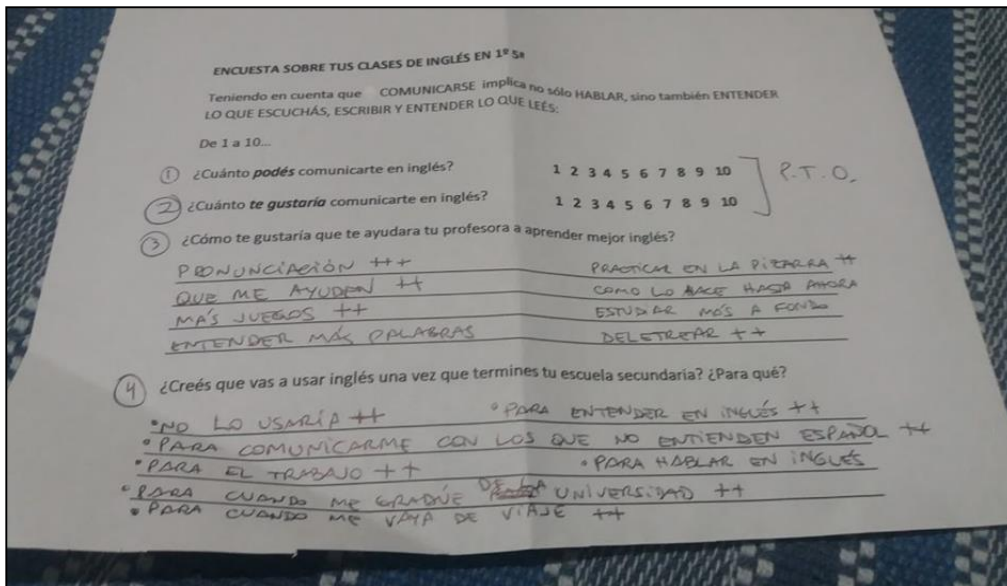 ENCUESTA SOBRE TUS CLASES DE INGLÉS EN 1º 5ª
Teniendo en cuenta que COMUNICARSE implica no sólo HABLAR, sino también ENTENDER
LO QUE ESCUCHÁS, ESCRIBIR Y ENTENDER LO QUE LEÉS:
De 1 a 10...
1 ¿Cuánto podés comunicarte en inglés? 1 2 3 4 5 6 7 8 9 10 P.T.O.
2 ¿Cuánto te gustaría comunicarte en inglés? 1 2 3 4 5 6 7 8 9 10
3 ¿Cómo te gustaría que te ayudara tu profesora a aprender mejor inglés?
PRONUNCIACIÓN +++ PRACTICAR EN LA PIZARRA ++
QUE ME AYUDEN ++ COMO LO HACE HASTA AHORA
MÁS JUEGOS ++ ESTUDIAR MÁS A FONDO
ENTENDER MÁS PALABRAS DELETREAR ++
4 ¿Creés que vas a usar inglés una vez que termines tu escuela secundaria? ¿Para qué?
•NO LO USARÍA ++ •PARA ENTENDER EN INGLÉS ++
•PARA COMUNICARME CON LOS QUE NO ENTIENDEN ESPAÑOL ++
•PARA EL TRABAJO ++ •PARA HABLAR EN INGLÉS
•PARA CUANDO ME GRADÚE DE LA UNIVERSIDAD ++
•PARA CUANDO ME VAYA DE VIAJE ++